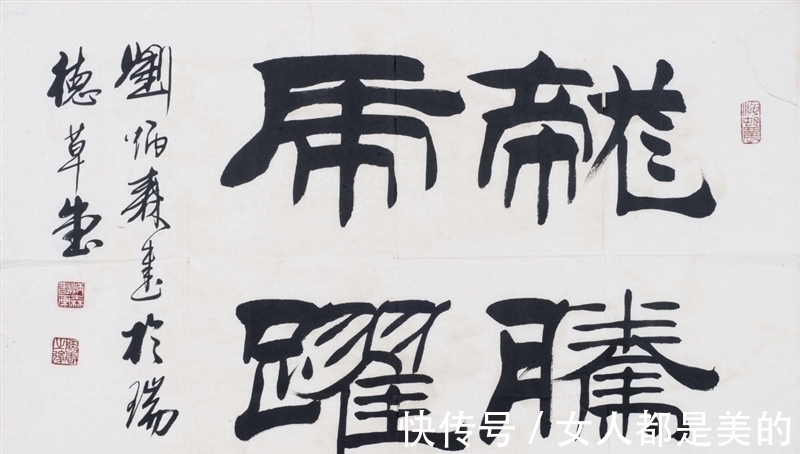 龍騰
虎躍
劉炳森書於瑞
德草堂
快传号/女人都是美的